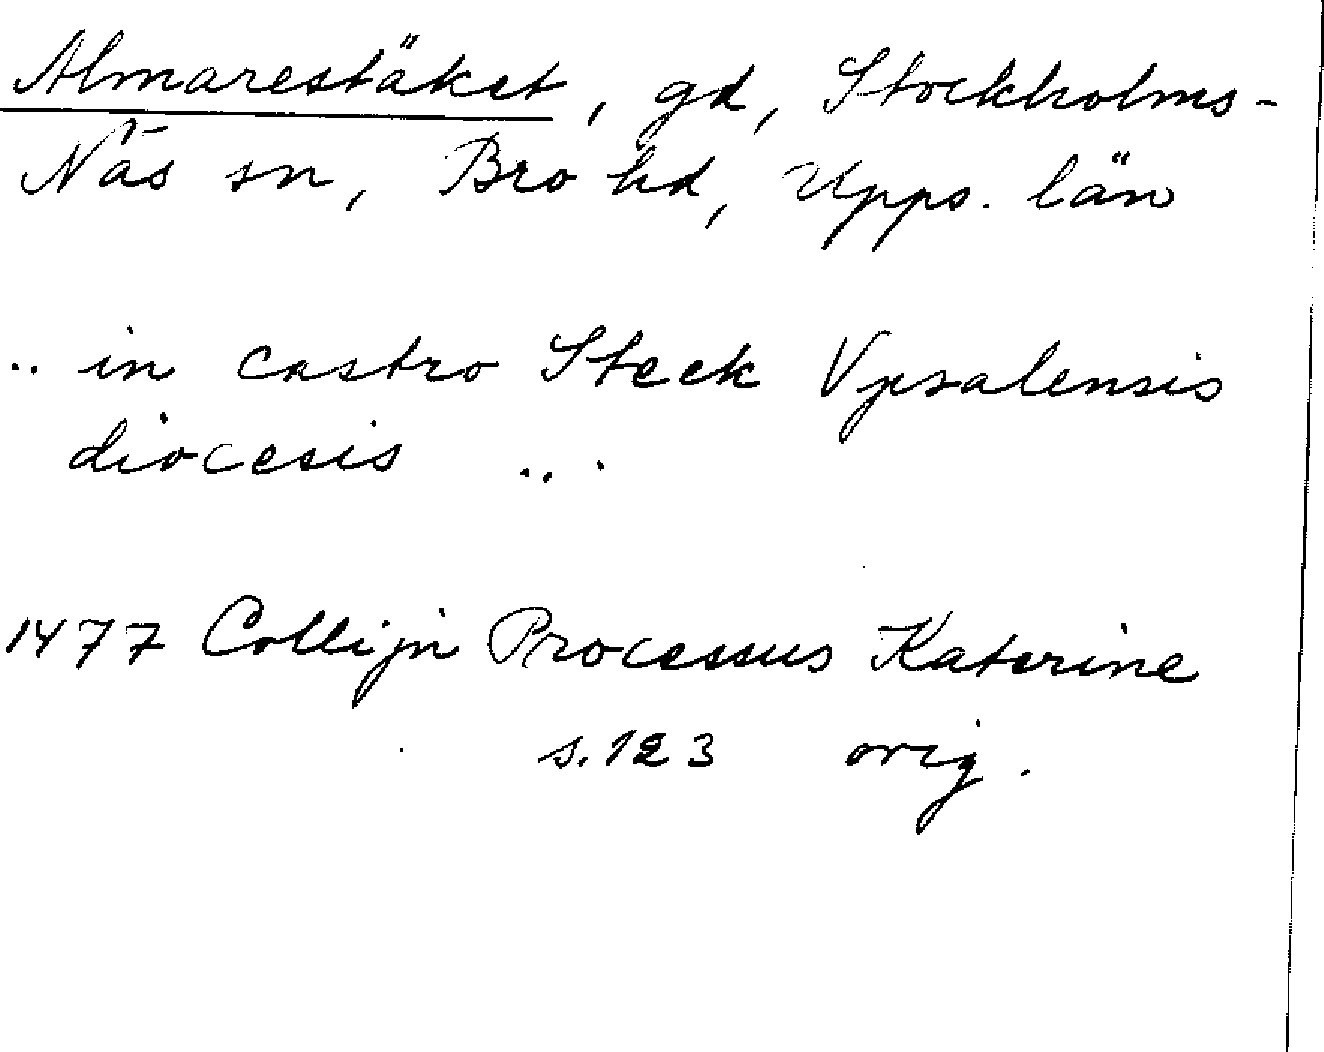 Almarestäket, gd, Stockholms-
Näs sn, Bro hd, Upps. län
.. in castro Steck Vpsalensis
diocesis ...
1477 Collijn Processus Katerine
s. 123 orig.